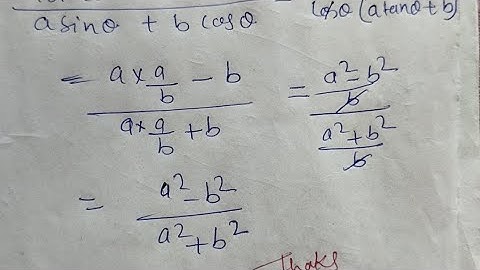 a sinθ + b cosθ   cosθ (a tanθ + b)
= (a × a/b − b) / (a × a/b + b) = ((a² − b²)/b) / ((a² + b²)/b)
= (a² − b²) / (a² + b²)
Thaks